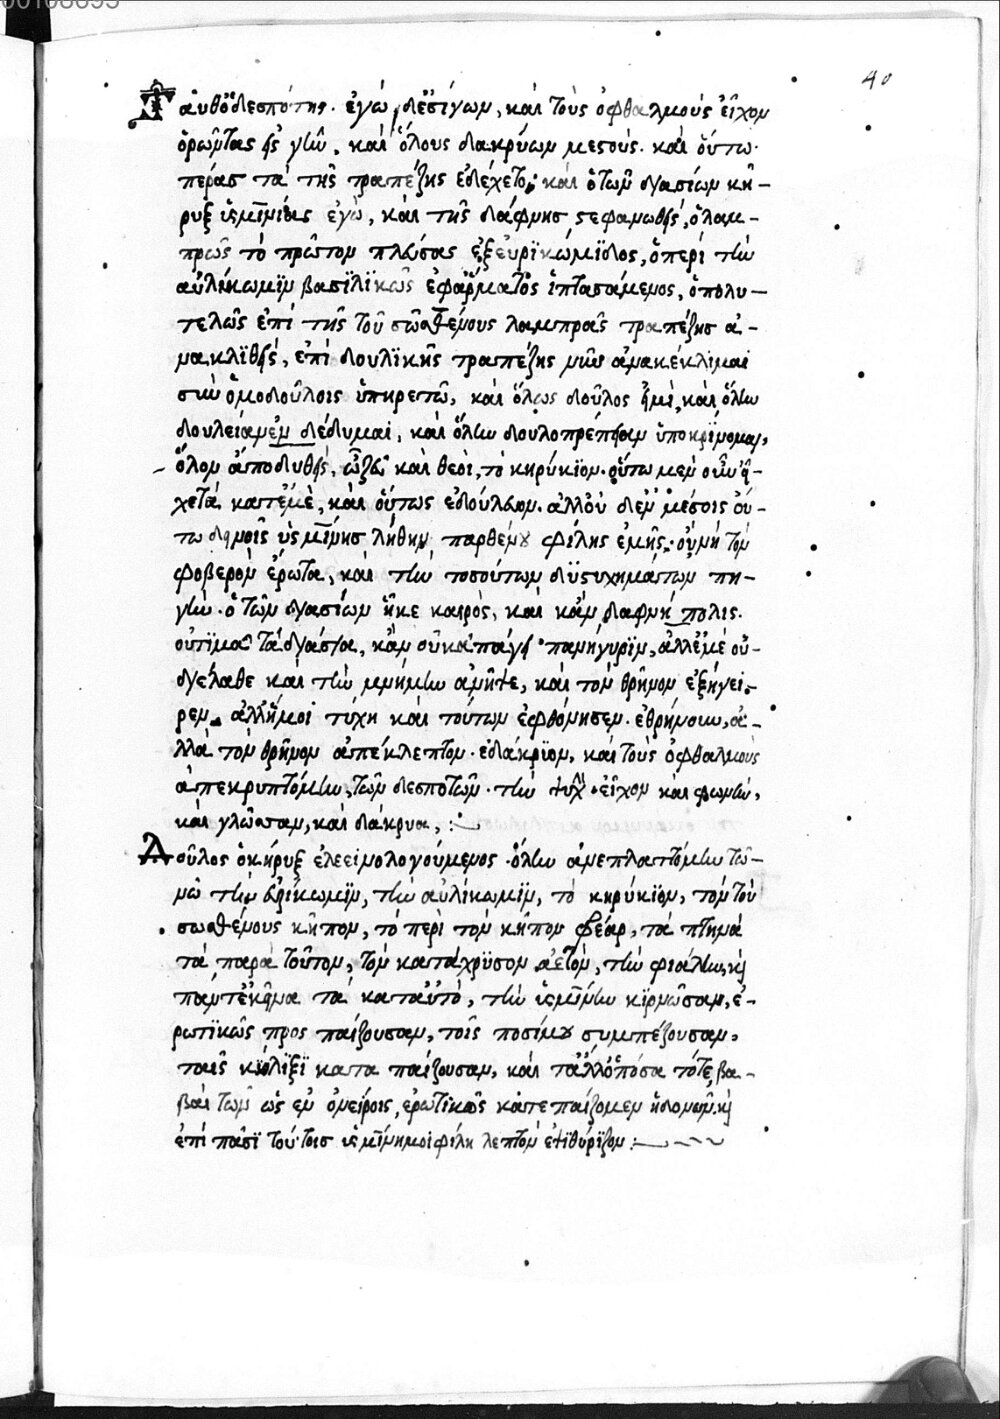 40
Ταῦθ' ὁ δεσπότης. ἐγὼ δ' ἐσίγων, καὶ τοὺς ὀφθαλμοὺς εἶχον
ὁρῶντας εἰς γῆν, καὶ ὅλους δακρύων μεστούς. καὶ οὕτω
πέρας τὰ τῆς τραπέζης ἐδέχετο; καὶ ὁ τῶν διασίων κή-
ρυξ ὑσμινίας ἐγὼ, καὶ τῆς δάφνης στεφανωθεὶς, ὁ λαμ-
πρῶς τὸ πρῶτον πλεύσας ἐξ εὐρϊκώμϊδος, ὁ περὶ τὴν
αὐλίκωμϊν βασϊλϊκῶς ἐφ' ἅρματος ἱπτασάμενος, ὁ πολυ-
τελῶς ἐπὶ τῆς τοῦ σωσθένους λαμπρᾶς τραπέζης ἀ-
νακλϊθεὶς, ἐπὶ δουλϊκῆς τραπέζης νῦν ἀνακέκλιμαι
σὺν ὁμοδούλοις ὑπηρετῶν, καὶ ὅλως δοῦλος εἰμὶ, καὶ ὅλην
δουλείαν ἐνδέδυμαι, καὶ ὅλην δουλοπρέπειαν ὑποκρίνομαι,
ὅλον ἀποδυθεὶς, ὦ ζεῦ καὶ θεοὶ, τὸ κηρύκϊον. οὕτω μὲν οὖν εἶ-
χε τὰ κατ' ἐμὲ, καὶ οὕτως ἐδούλευον. ἀλλ' οὐδ' ἐν μέσοις οὕ-
τω δεινοῖς ὑσμίνης λήθην παρθένου φίλης ἐμῆς. οὐμὴ τὸν
φοβερὸν ἔρωτα, καὶ τὴν τοσούτων δϋστυχημάτων πη-
γήν. ὁ τῶν διασίων ἧκε καιρὸς, καὶ κἂν δαφνήπολις
οὐ τϊμᾶ τὰ διάσια, κἂν οὐκ ἄγει πανήγυρϊν, ἀλλ' ἐμὲ οὐ
διέλαθε καὶ τὴν μνήμην ἀνῆψε, καὶ τὸν θρῆνον ἐξήγει-
ρεν. ἀλλ' ἦ μοι τύχη καὶ τούτων ἐφθόνησεν. ἐθρήνουν, ἀ-
λλὰ τὸν θρῆνον ἀπέκλεπτον. ἐδάκρϋον, καὶ τοὺς ὀφθαλμοὺς
ἀπεκρυπτόμην, τῶν δεσποτῶν. τὴν ψυχὴν εἶχον καὶ φωνὴν,
καὶ γλῶτταν, καὶ δάκρυα, :~
Δοῦλος ὁ κῆρυξ ἐλεεινολογούμενος. ὅλην ἀνεπλαττόμην τῷ
νῷ τὴν εὐρίκωμϊν, τὴν αὐλίκωμϊν, τὸ κηρύκϊον, τὸν τοῦ
σωσθένους κῆπον, τὸ περὶ τὸν κῆπον φρέαρ, τὰ πτηνὰ
τὰ παρὰ τοῦτον, τὸν κατάχρϋσον ἀετὸν, τὴν φιάλην, κὶ
πάντ' ἐκεῖνα τὰ κατ' αὐτὸ, τὴν ὑσμίνην κϊρνῶσαν, ἐ-
ρωτϊκῶς προσπαίζουσαν, τοῖς ποσί μου συμπιέζουσαν,
ταῖς κύλϊξϊ καταπαίζουσαν, καὶ τἆλλ' ὁπόσα τότε, βα-
βαὶ τῶν ὡς ἐν ὀνείροις, ἐρωτικῶς κατεπαίζομεν ἡδονῶν, κὶ
ἐπὶ πᾶσϊ τούτοις ὑσμίνη μοι φίλη λεπτὸν ἐψϊθύρϊζον :~